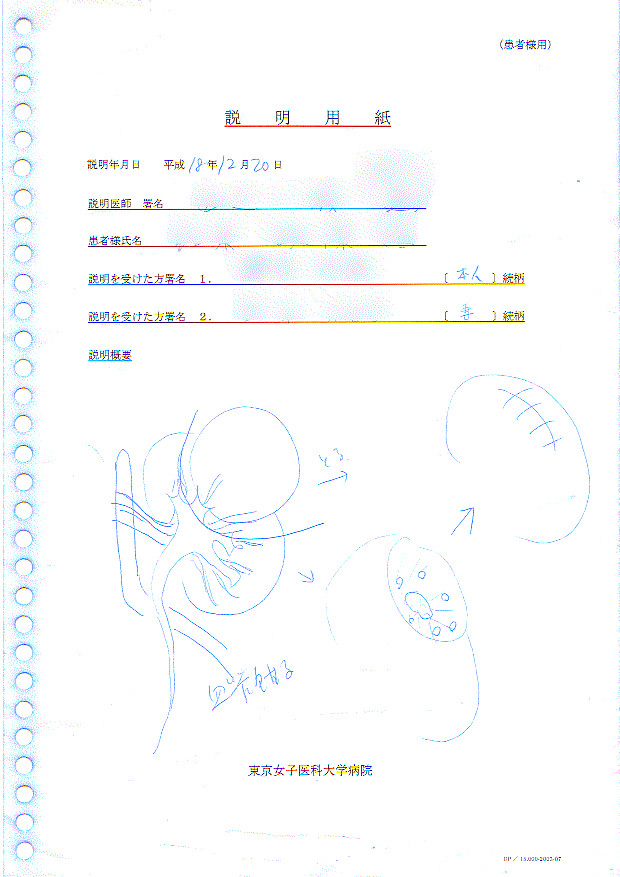 (患者様用)
説明用紙
説明年月日 平成 18年12月20日
説明医師 署名
患者様氏名
説明を受けた方署名 1. 〔 本人 〕続柄
説明を受けた方署名 2. 〔 妻 〕続柄
説明概要
とる
東京女子医科大学病院
DP/15.000-2003-07